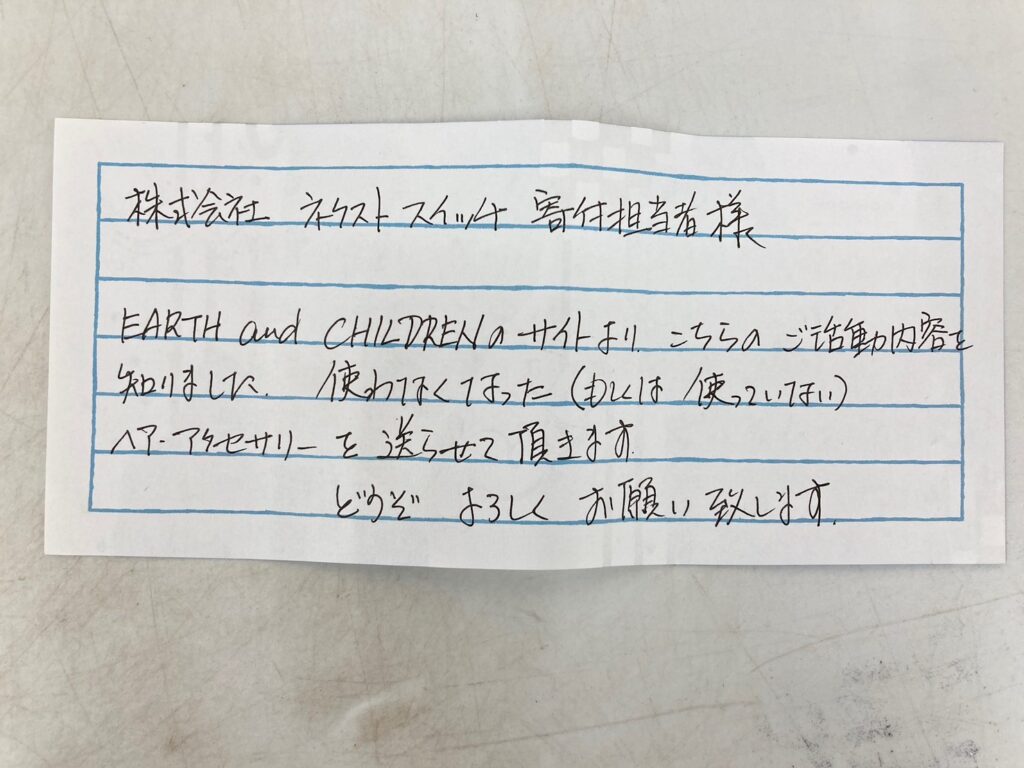 株式会社 ネクストスイッチ 寄付担当者様
EARTH and CHILDRENのサイトより、こちらの ご活動内容を
知りました。 使わなくなった (もしくは 使っていない)
ヘア・アクセサリー を 送らせて頂きます。
どうぞ よろしく お願い致します。